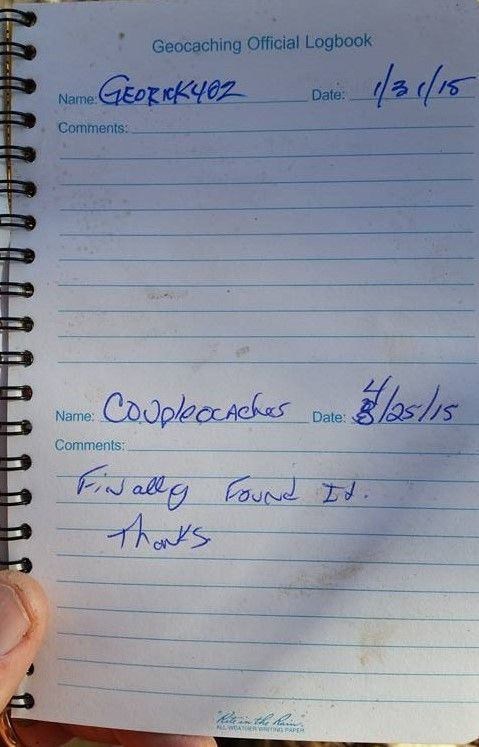 Geocaching Official Logbook
Name: GEORICK402 Date: 1/31/15
Comments:
Name: Couplecachers Date: 4/25/15
Comments:
Finally Found It.
Thanks
"Rite in the Rain"
ALL-WEATHER WRITING PAPER